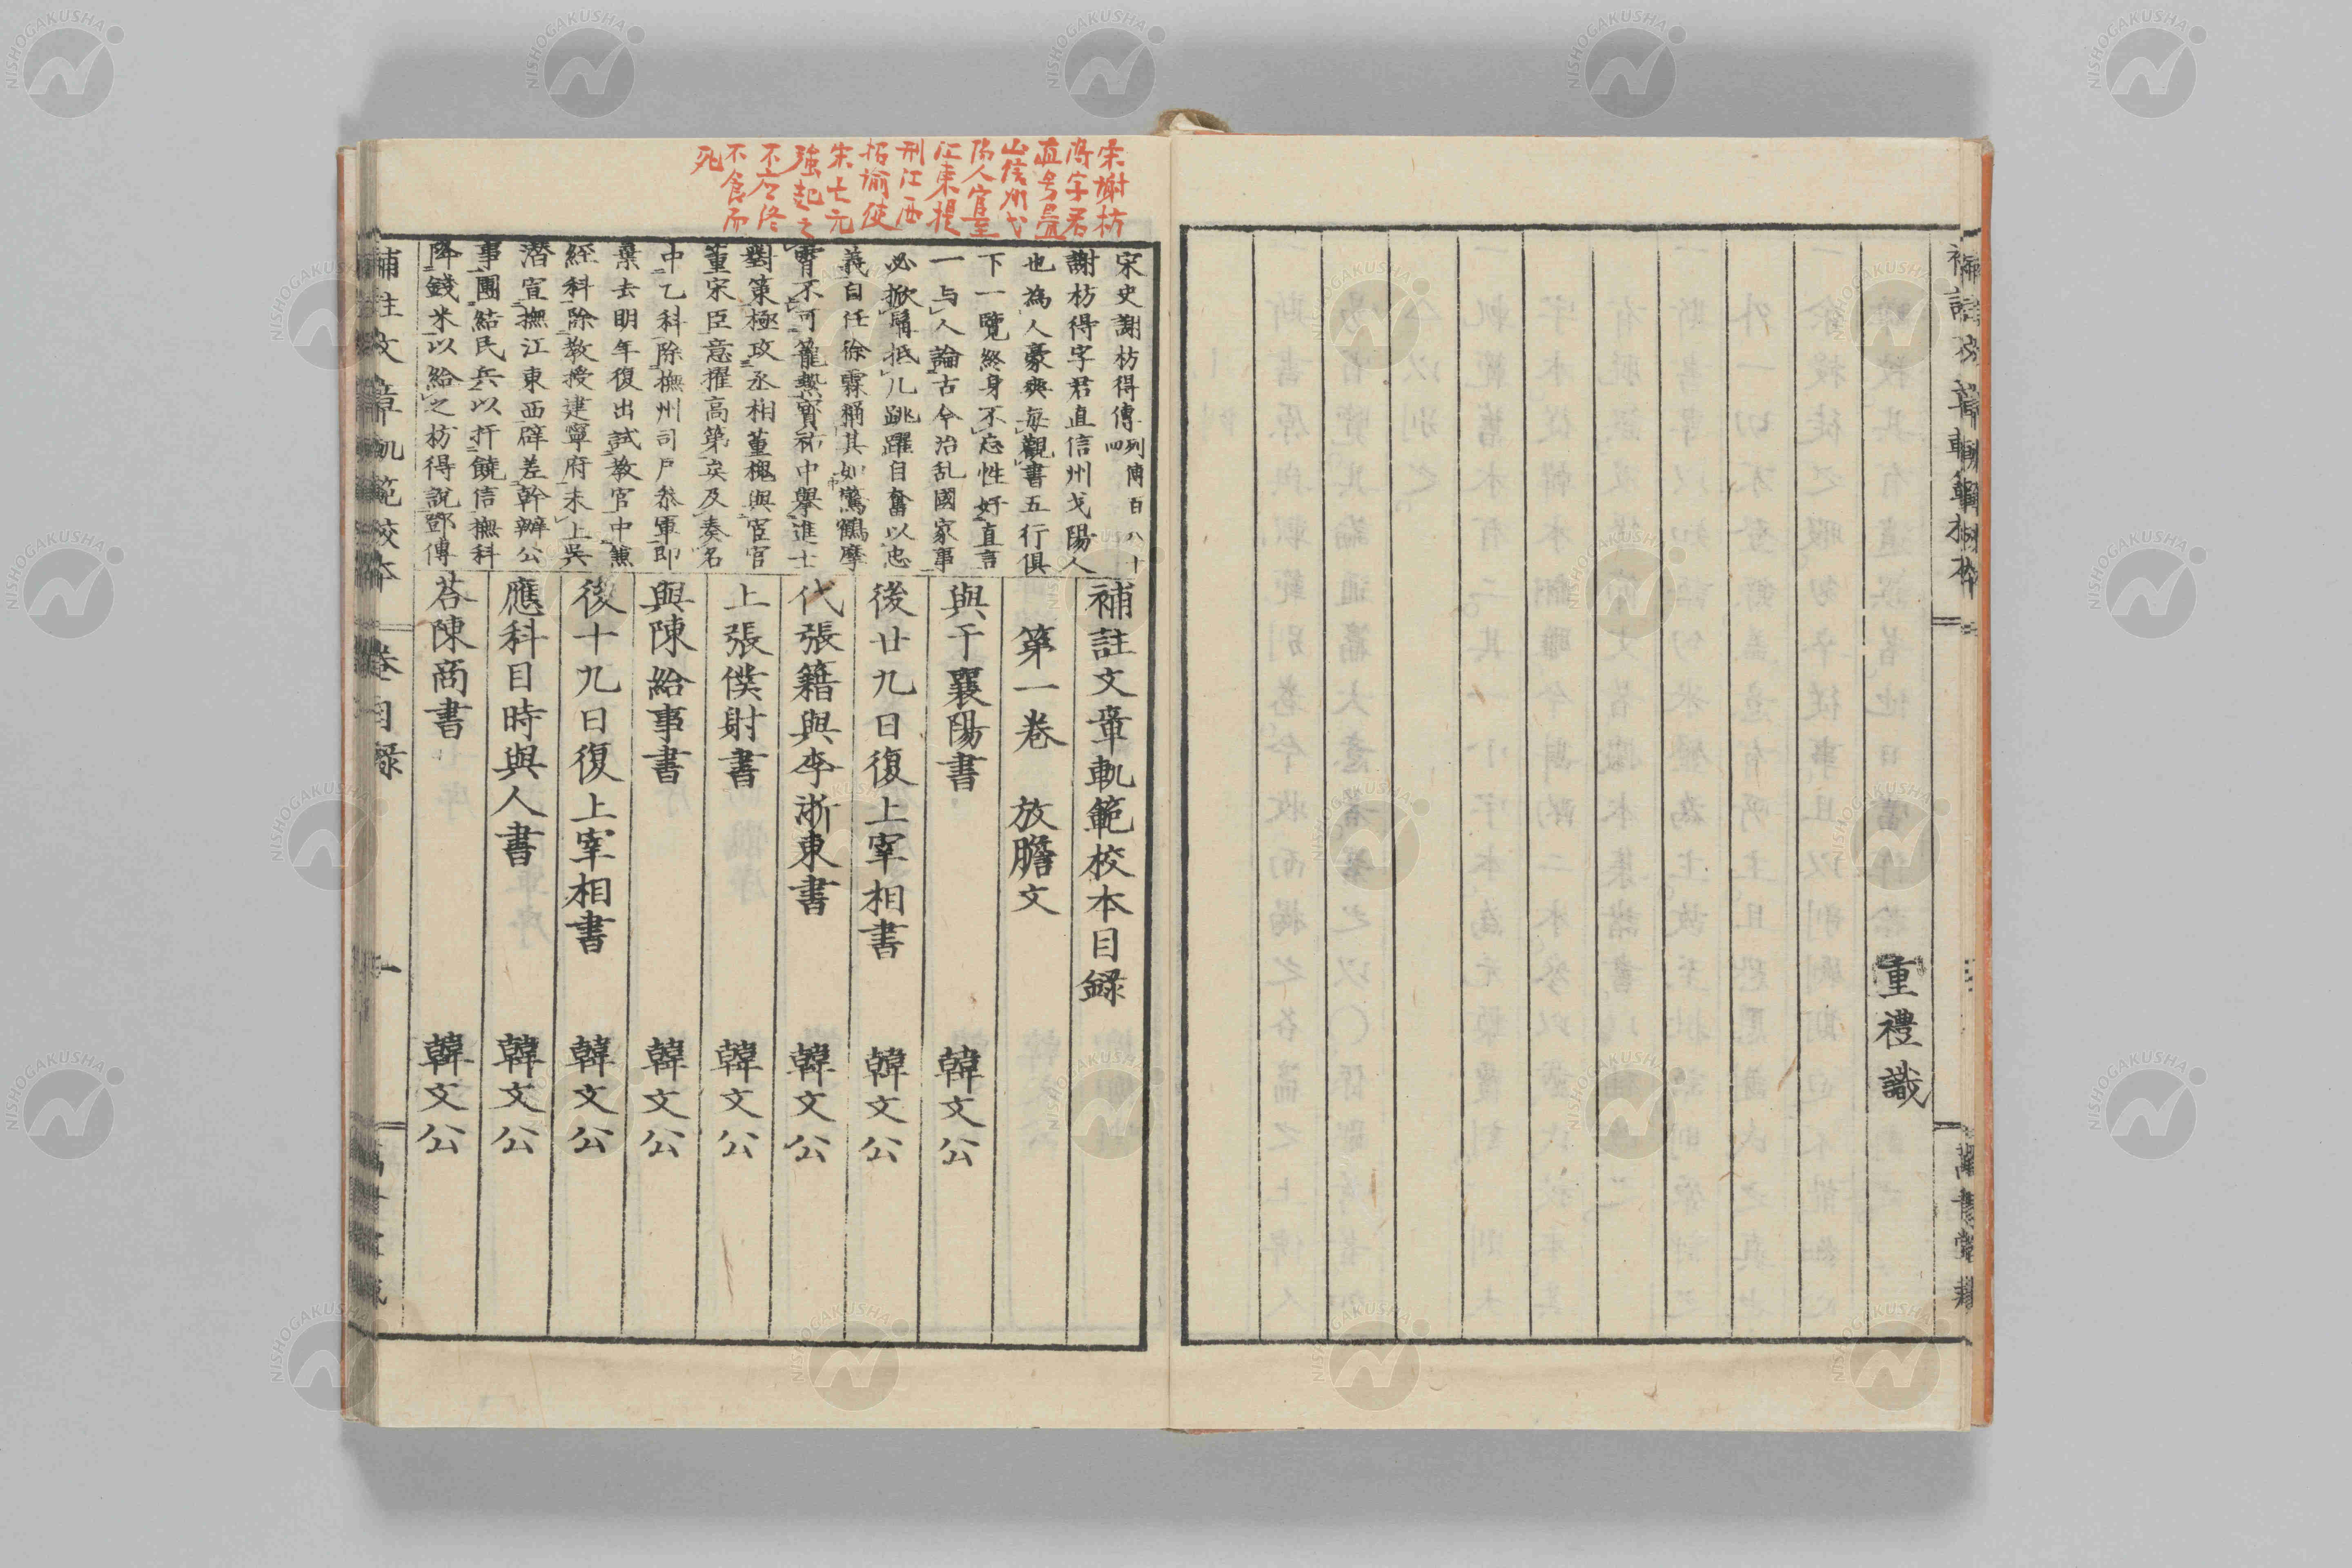 重禮識
宋謝枋
得字君
直号疊
山信州弋
陽人官至
江東提
刑江西
招諭使
宋亡元
強起之
不屈終
不食而
死
宋史謝枋得傳列傳百八十四
謝枋得字君直信州弋陽人
也為人豪爽每觀書五行俱
下一覽終身不忘性好直言
一与人論古今治乱國家事
必掀髯抵几跳躍自奮以忠
義自任徐霖稱其如驚鶴摩
霄不可籠縶寶祐中舉進士
對策極攻丞相董槐與宦官
董宋臣意擢高第矣及奏名
中乙科除撫州司戶叅軍即
棄去明年復出試教官中兼
經科除教授建寧府未上吳
潛宣撫江東西辟差幹辦公
事團結民兵以扞饒信撫科
降錢米以給之枋得說鄧傳
補註文章軌範校本目録
第一卷　放膽文
與于襄陽書　韓文公
後廿九日復上宰相書　韓文公
代張籍與李浙東書　韓文公
上張僕射書　韓文公
與陳給事書　韓文公
後十九日復上宰相書　韓文公
應科目時與人書　韓文公
荅陳商書　韓文公
補註文章軌範校本　卷目録　一
NISHOGAKUSHA